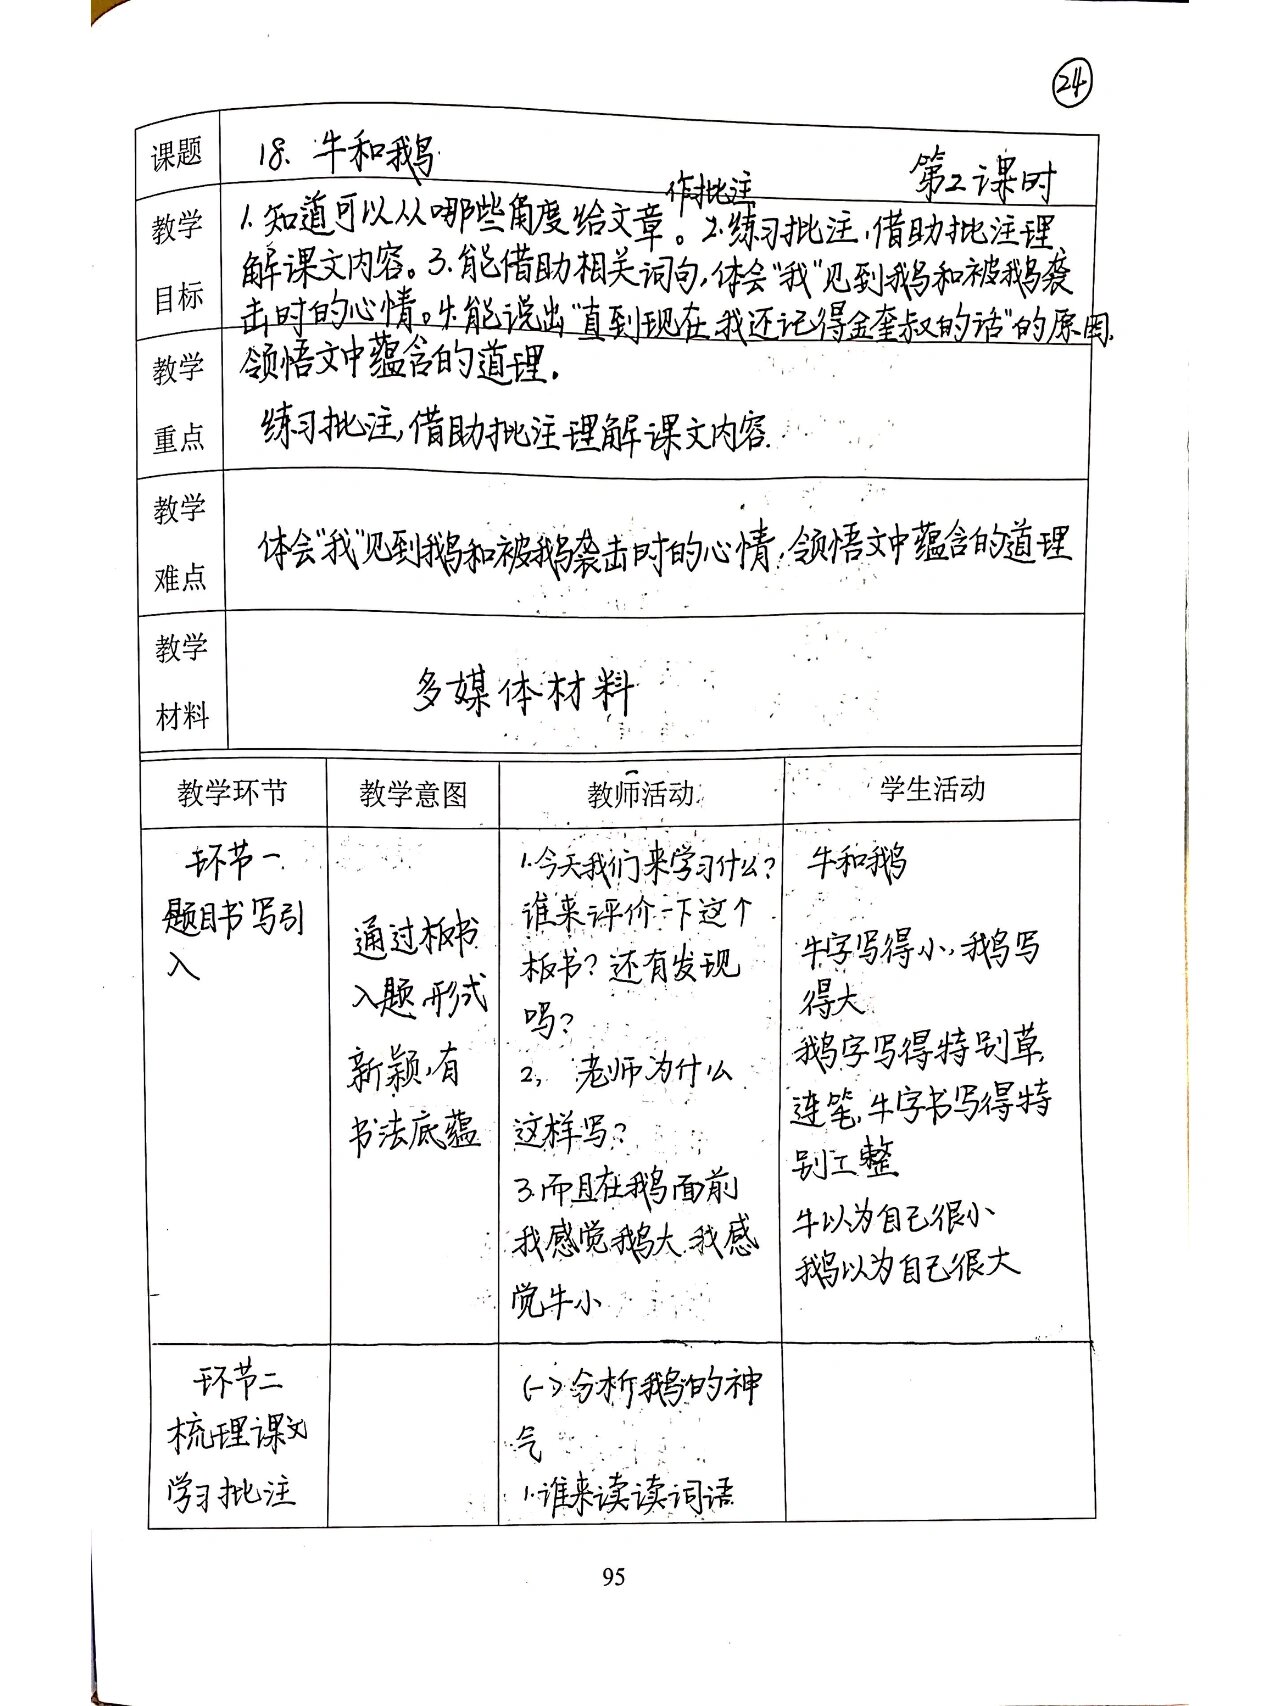 24
课题
18、牛和鹅
第2课时
教学
目标
作批注
1.知道可以从哪些角度给文章。2.练习批注,借助批注理
解课文内容。3.能借助相关词句,体会“我”见到鹅和被鹅袭
击时的心情。4.能说出“直到现在,我还记得金奎叔的话”的原因,
领悟文中蕴含的道理.
教学
重点
练习批注,借助批注理解课文内容.
教学
难点
体会“我”见到鹅和被鹅袭击时的心情,领悟文中蕴含的道理
教学
材料
多媒体材料
教学环节 教学意图 教师活动 学生活动
环节一
题目书写引
入
通过板书
入题,形式
新颖,有
书法底蕴
1.今天我们来学习什么?
谁来评价一下这个
板书?还有发现
吗?
2, 老师为什么
这样写?
3.而且在鹅面前
我感觉鹅大,我感
觉牛小
牛和鹅
牛字写得小,鹅写
得大
鹅字写得特别草,
连笔,牛字书写得特
别工整
牛以为自己很小
鹅以为自己很大
环节二
梳理课文
学习批注
(一)分析鹅的神
气
1.谁来读读词语
95